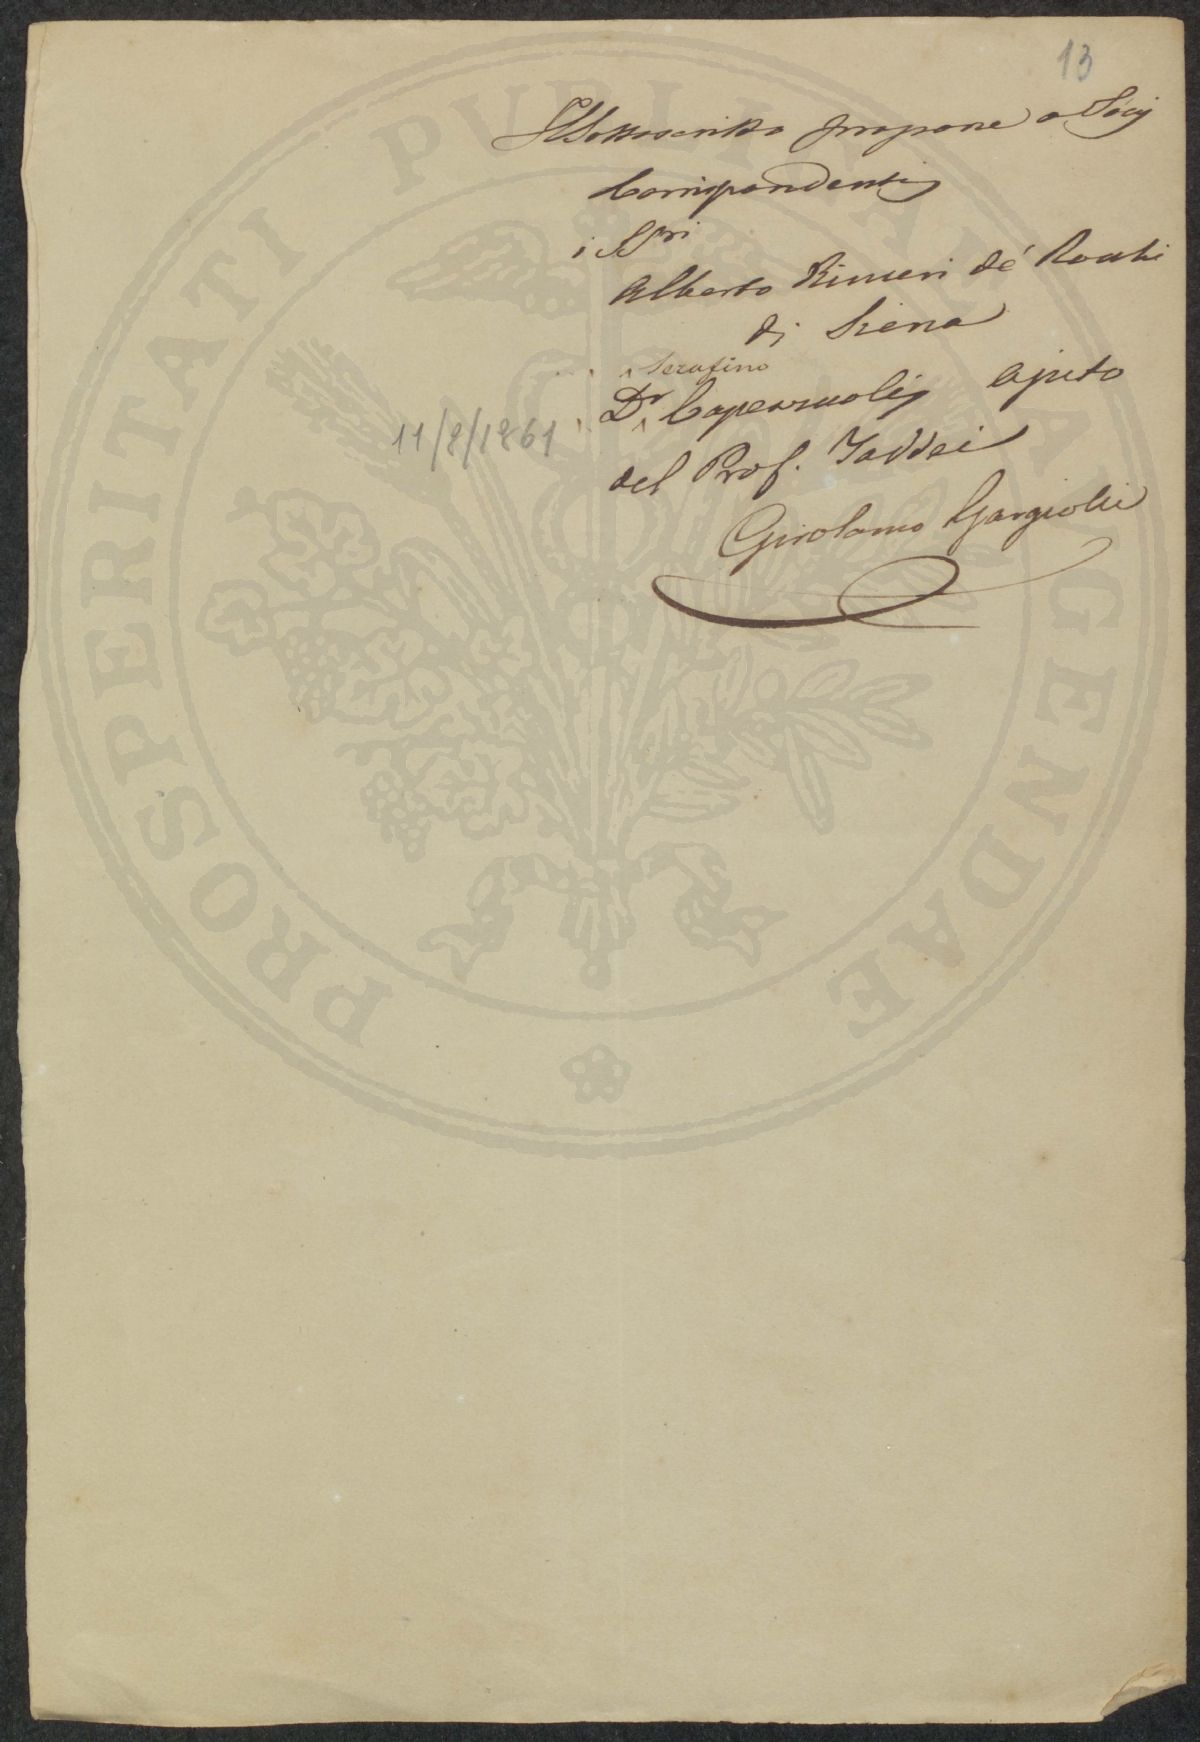 13
Il Sottoscritto propone a Socij
Corrispondentij
i SSri
Alberto Rimeri de' Rocchi
di Siena
Serafino
Dr Capezzuolij ajuto
del Prof. Taddei
11/8/1861
Girolamo Gargiolli
PROSPERITATI PUBLICAE AUGENDAE